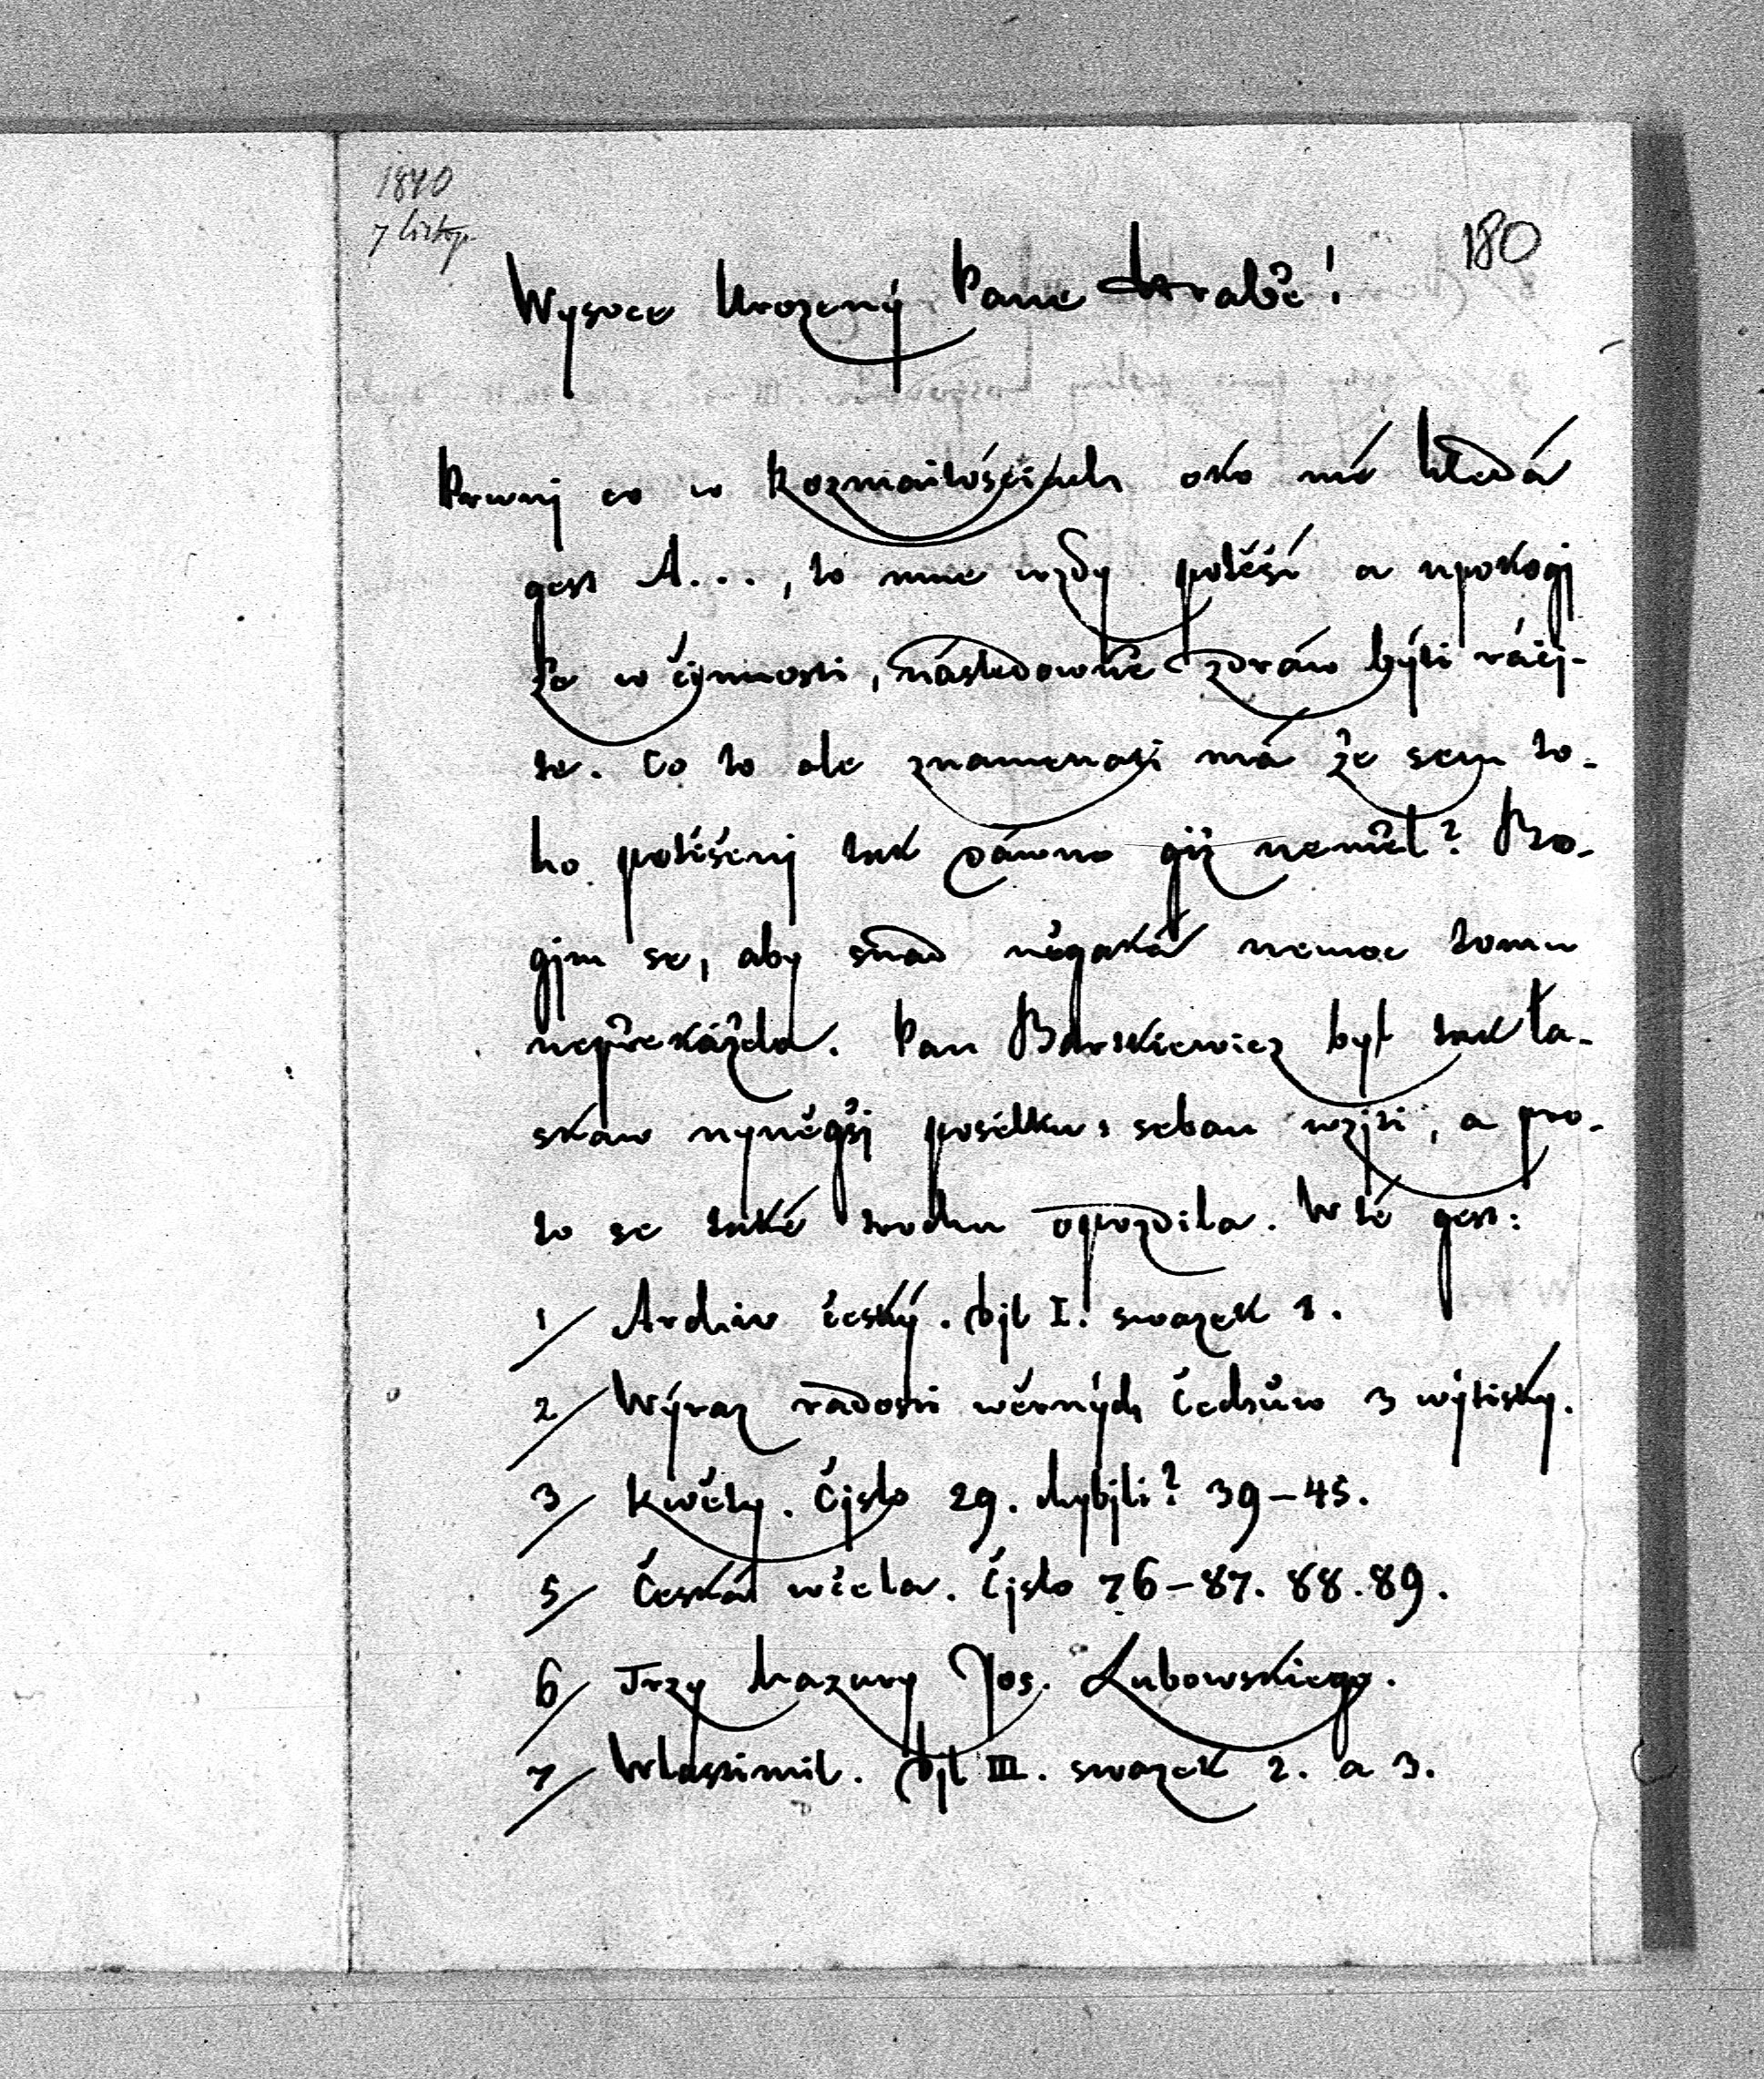 1840
7 listop.
180
Wysoce Urozený Pane Hrabě!
Prwnj co w Rozmaitościach oko mé hledá
gest A..., to mne wždy potěší a upokogj
že w činnosti, následowně zdráw býti ráčj-
te. Co to ale znamenati má že sem to-
ho potěšenj tak dáwno giž neměl? Bo-
gjm se, aby snad něgaká nemoc tomu
nepřekážela. Pan Barskiewicz był tak ła-
skaw nyněgšj posilku s sebau wzjti, a pro-
to se také trochu opozdila. W té gest:
1/ Archiw český. Djl I. swazek 1.
2/ Wýraz radosti wěrných Čechůw 3 wýtisky.
3/ Kwěty. Čjslo 29. chybjli? 39–45.
5/ Česká wčela. Čjslo 76–87. 88. 89.
6/ Trzy Mazury Jos. Lubowskiego.
7/ Wlastimil. Djl III. swazek 2. a 3.